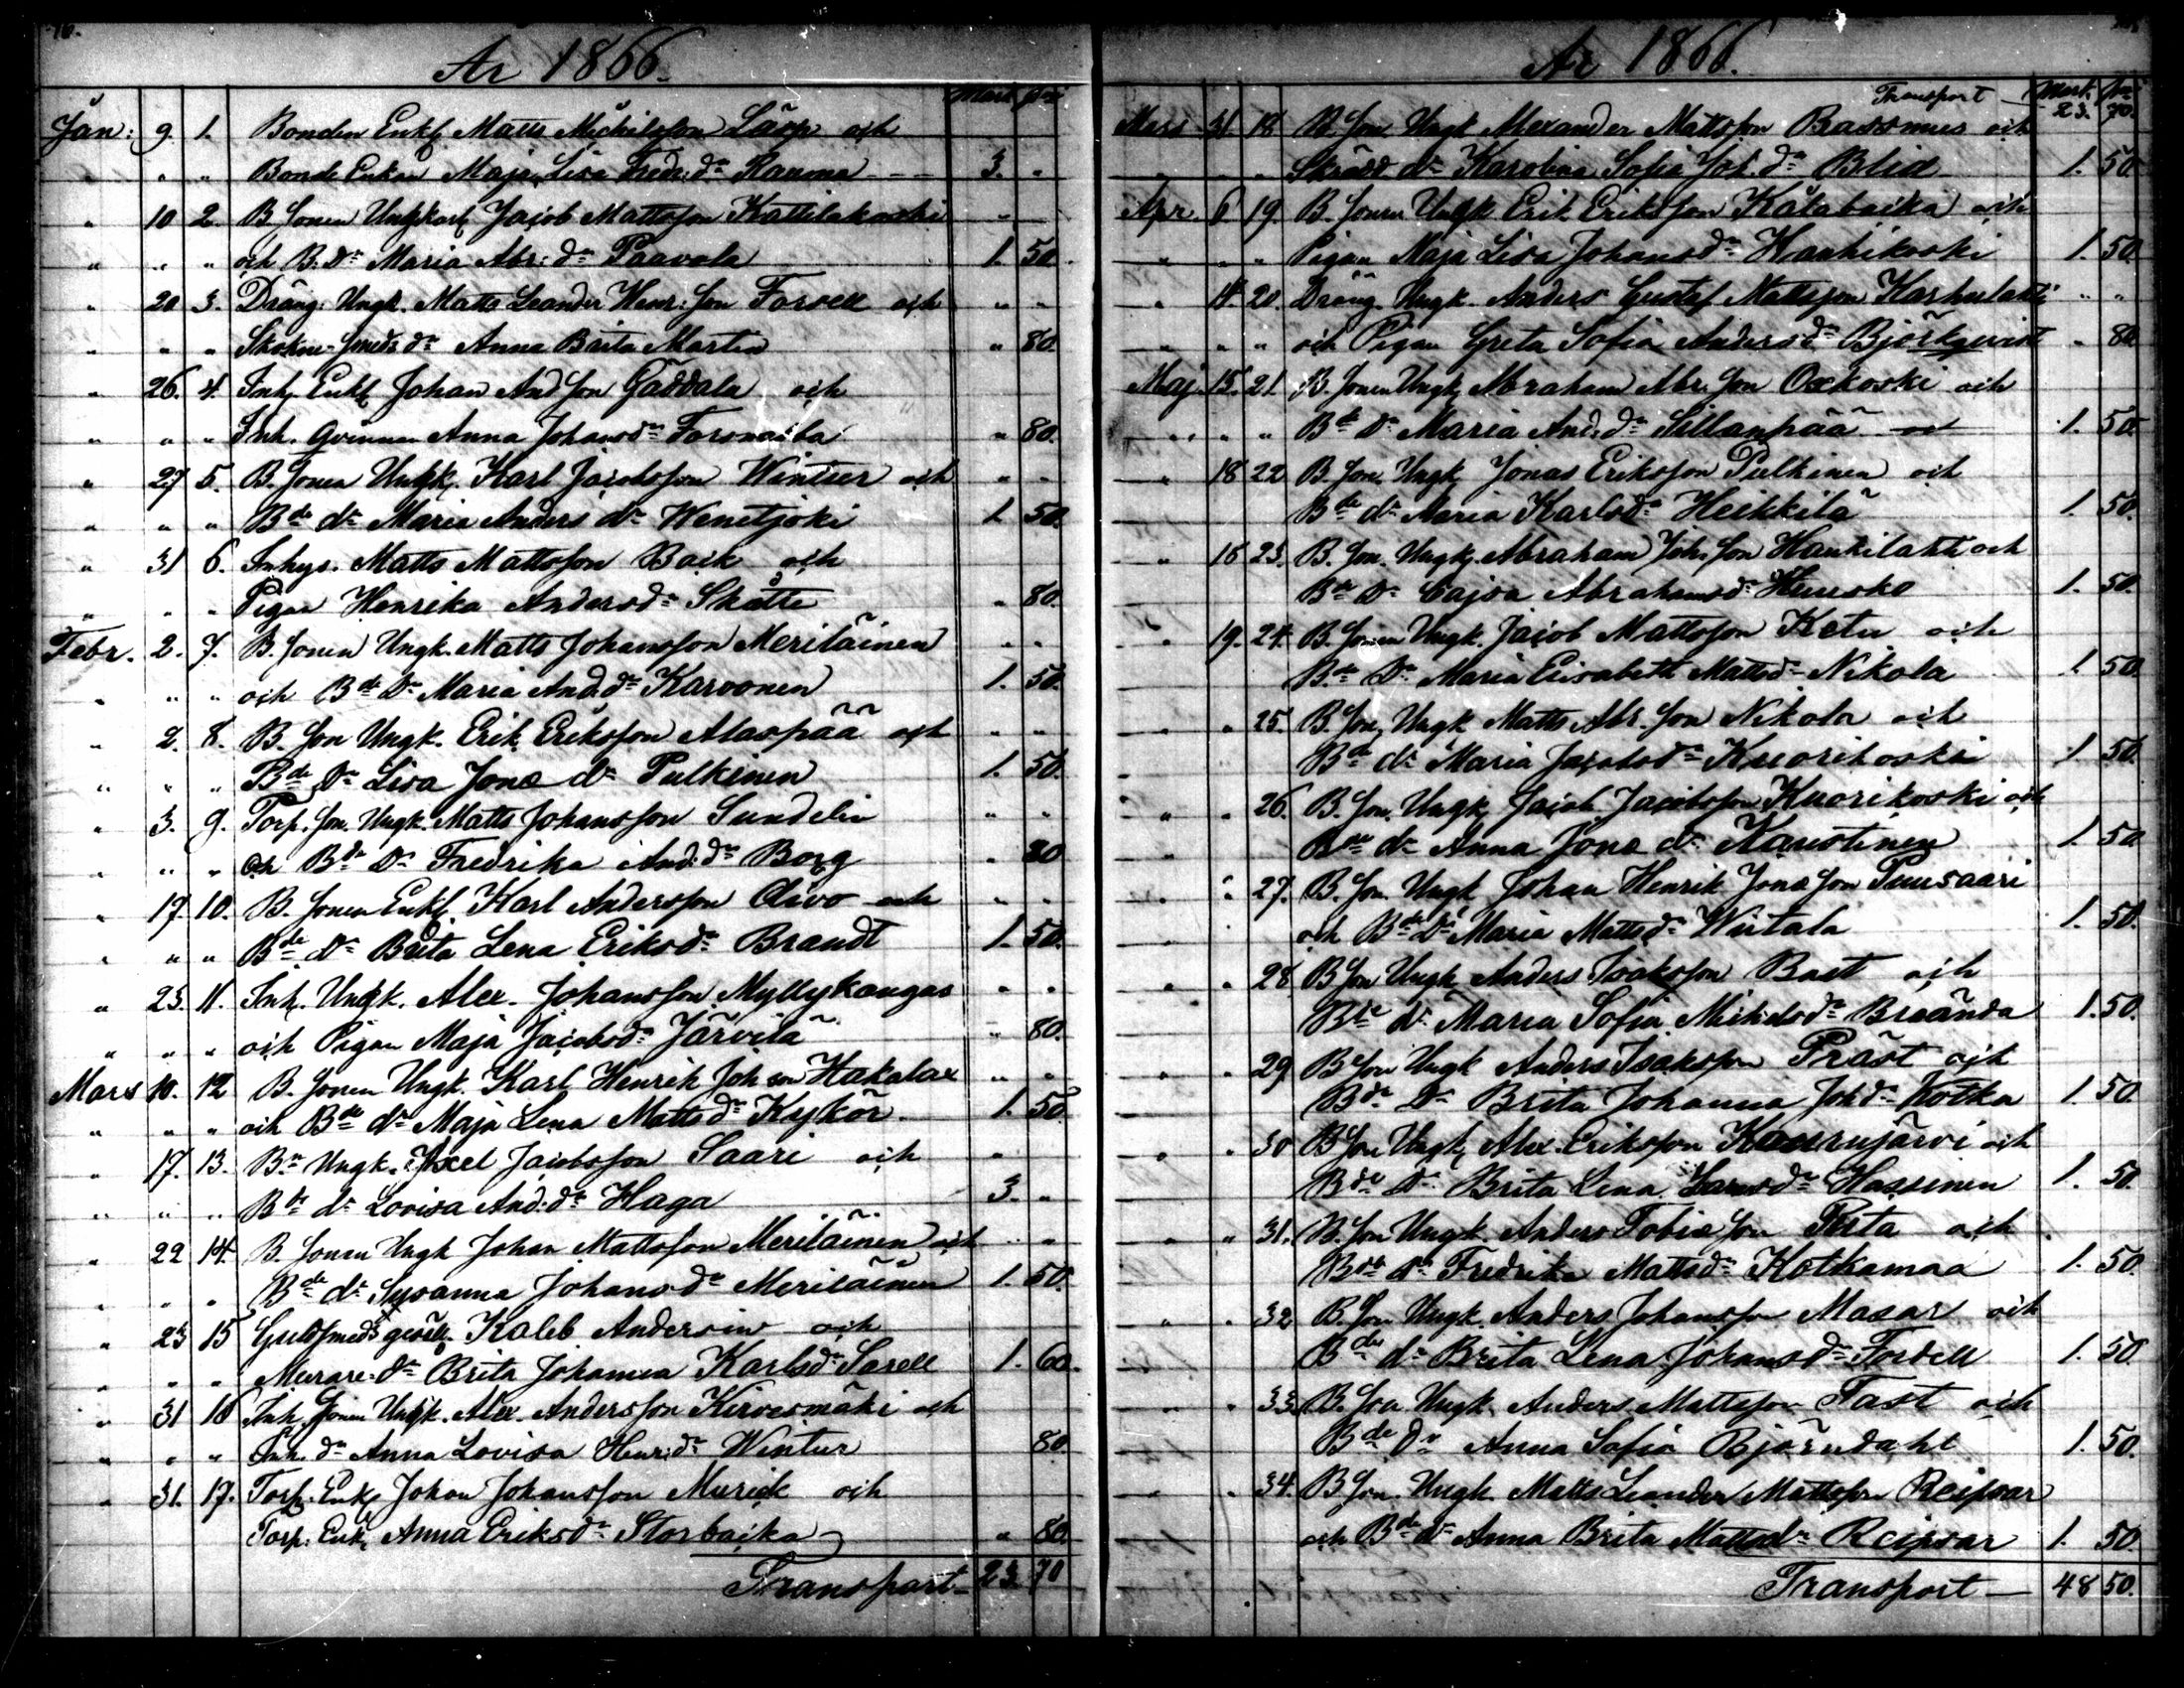 År 1866.
Mark pni
Jan: 9. 1. Bonden Enkl Matts Michelsson Läsp och
" " " Bonde Enkan Maja Lisa Fredr. dr Rauma --- 3. "
" 10 2. B. Sonen Ungkarl Jacob Mattsson Kattilakoski "
" " " och B: Dr Maria Abr: dr Paavola 1. 50.
" 20 3. Dräng: Ungk. Matts Leander Henr: Son Forsell och " "
" " " Smeds dr Anna Brita Martin " 80.
" 26. 4. Inh. Enkl Johan And Son Gäddala och
" " " Inh. Qvinnan Anna Johansdr " 80.
" 27 5. B. Sonen Ungk. Karl Jacobsson Winter och " "
" " " Bde dr Maria Anders dr Wenetjoki 1. 50.
" 31 6. Inhys. Matts Mattsson Baik och
" " " Pigan Henrika Andersdr Skåtte " 80.
Febr. 2. 7. B. Sonen Ungk. Matts Johansson Meriläinen " "
" " " och Bde Dr Maria And. dr Karvonen 1. 50.
" 2. 8. B. Son Ungk. Erik Eriksson Alaspää och " "
" " " Bde Dr Lisa Jonæ dr Pulkinen 1. 50.
" 3. 9. Torp. Son Ungk. Matts Johansson Sundelin " "
" " " och Bde Dr Fredrika And: dr Borg " 80
" 17. 10. B. Sonen Enkl Karl Andersson Aivo och " "
" " " Bde dr Brita Lena Eriksdr Brandt 1. 50.
" 25. 11. Inh. Ungk. Alex. Johansson Myllykangas " "
" " " och Pigan Maja Jacobsdr Järvilä " 80.
Mars 10. 12 B. Sonen Ungk. Karl Henrik Joh son Hakalax " "
" " " och Bde dr Maja Lena Mattsdr Kykör 1. 50
" 17. 13. Bn Ungk. Axel Jacobsson Saari och "
" " " Bde dr Lovisa And: dr Haga 3. "
" 22 14. B. Sonen Ungk Johan Mattsson Meriläinen och " "
" " " Bde dr Susanna Johansdr Meriläinen 1. 50.
" 23 15 Guldsmeds gesäll. Kaleb Andersin och
" " " Murare. dr Brita Johanna Karlsdr Sarell 1. 60.
" 31 16 Inh. Sonen Ungk. Alex. Andersson Kirvesmäki och
" " " Inh. dr Anna Lovisa Henr: dr Winter 80.
" 31. 17. Torp. Enkl Johan Johansson Murick och
Torp. Enk. Anna Eriksdr Storbacka " 80.
Transport 23. 70
År 1866.
Transport Mark. pni
23. 70.
Mars 31 18 B. Son Ungk Alexander Mattsson Brassmus och
" " " Skrädd dr Karolina Sofia Joh. dr Blid 1. 50
Apr. 6 19. B. Sonen Ungk Erik Eriksson Kålabacka och
" " " Pigan Maja Lisa Johansdr Hanhikoski 1. 50
" 14 20. Dräng Ungk. Anders Gustaf Mattsson Karhulahti " "
" " " och Pigan Greta Sofia Andersdr Björkqvist " 80
Maj. 15. 21. B. Sonen Ungk Abraham Abr. Son Oxkoski och
" " " Bde Dr Maria And: dr Sillanpää 1. 50.
" 18 22 B. Son Ungk Jonas Eriksson Pulkinen och
Bde dr Maria Karlsdr Heikkilä 1. 50.
" 18 23. B. Son. Ungk. Abraham Joh. Son Haukilahti och
Bde Dr Cajsa Abrahamsdr 1. 50.
" 19. 24. B. Sonen Ungk. Jacob Mattsson Ketu och
Bde Dr Maria Elisabeth Mattsdr Nikola 1. 50
" " 25. B. Son Ungk Matts Abr. Son Nikola och
Bde dr Maria Jacobsdr Kuorikoski 1. 50
" " 26. B. Son. Ungk. Jacob Jacobsson Kuorikoski och
Bde dr Anna Jonæ dr Kaustinen 1. 50
" " 27. B. Son Ungk Johan Henrik Jonæ Son Puusaari
och Bde Dr Maria Mattsdr Wiitala 1. 50.
" " 28. B Son Ungk Anders Isaksson Bast och
Bde dr Maria Sofia Mickelsdr Breända 1. 50.
" " 29 B Son Ungk Anders Isaksson Präst och
Bde Dr Brita Johanna Joh dr Kotka 1. 50
" " 30 B Son Ungk Alex. Eriksson Kaurujärvi och
Bde Dr Brita Lena Hassinen 1. 50.
" " 31. B. Son Ungk. Anders Tobiæ Son och
Bde dr Fredrika Mattsdr Kotkamaa 1. 50.
" " 32 B. Son Ungk. Anders Johansson Masar och
Bde dr Brita Lena Johansdr Fordell 1. 50.
" " 33. B. Son Ungk. Anders Mattsson Fast och
Bde Dr Anna Sofia Björndahl 1. 50.
" 34. B Son. Ungk. Matts Leander Mattsson Reipsar
och Bde dr Anna Brita Mattsdr Reipsar 1. 50.
Transport 48 50.